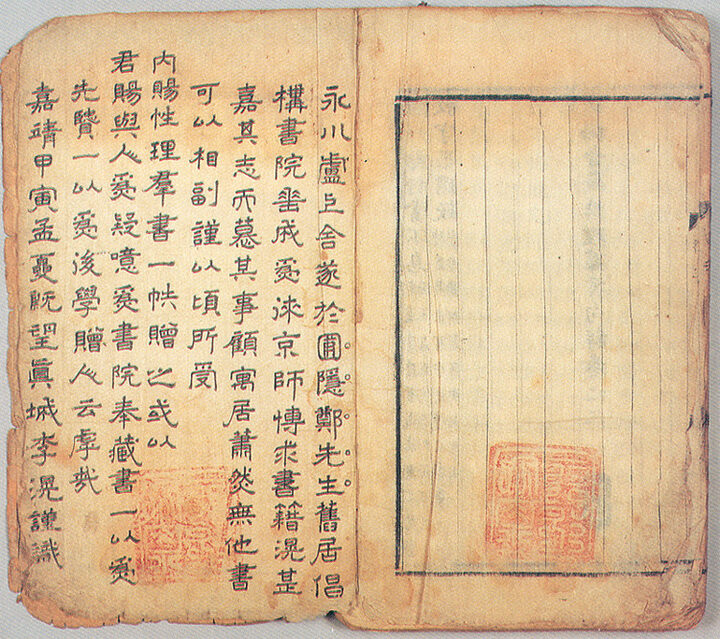 永川盧上舍遂於圃隱鄭先生舊居倡
構書院垂成爲徠京師博求書籍滉甚
嘉其志而慕其事顧寓居蕭然無他書
可以相副謹以頃所受
內賜性理羣書一帙贈之或以
君賜與人爲疑意爲書院奉藏書一以爲
先賢一以爲後學贈人云乎哉
嘉靖甲寅孟夏旣望眞城李滉謹識